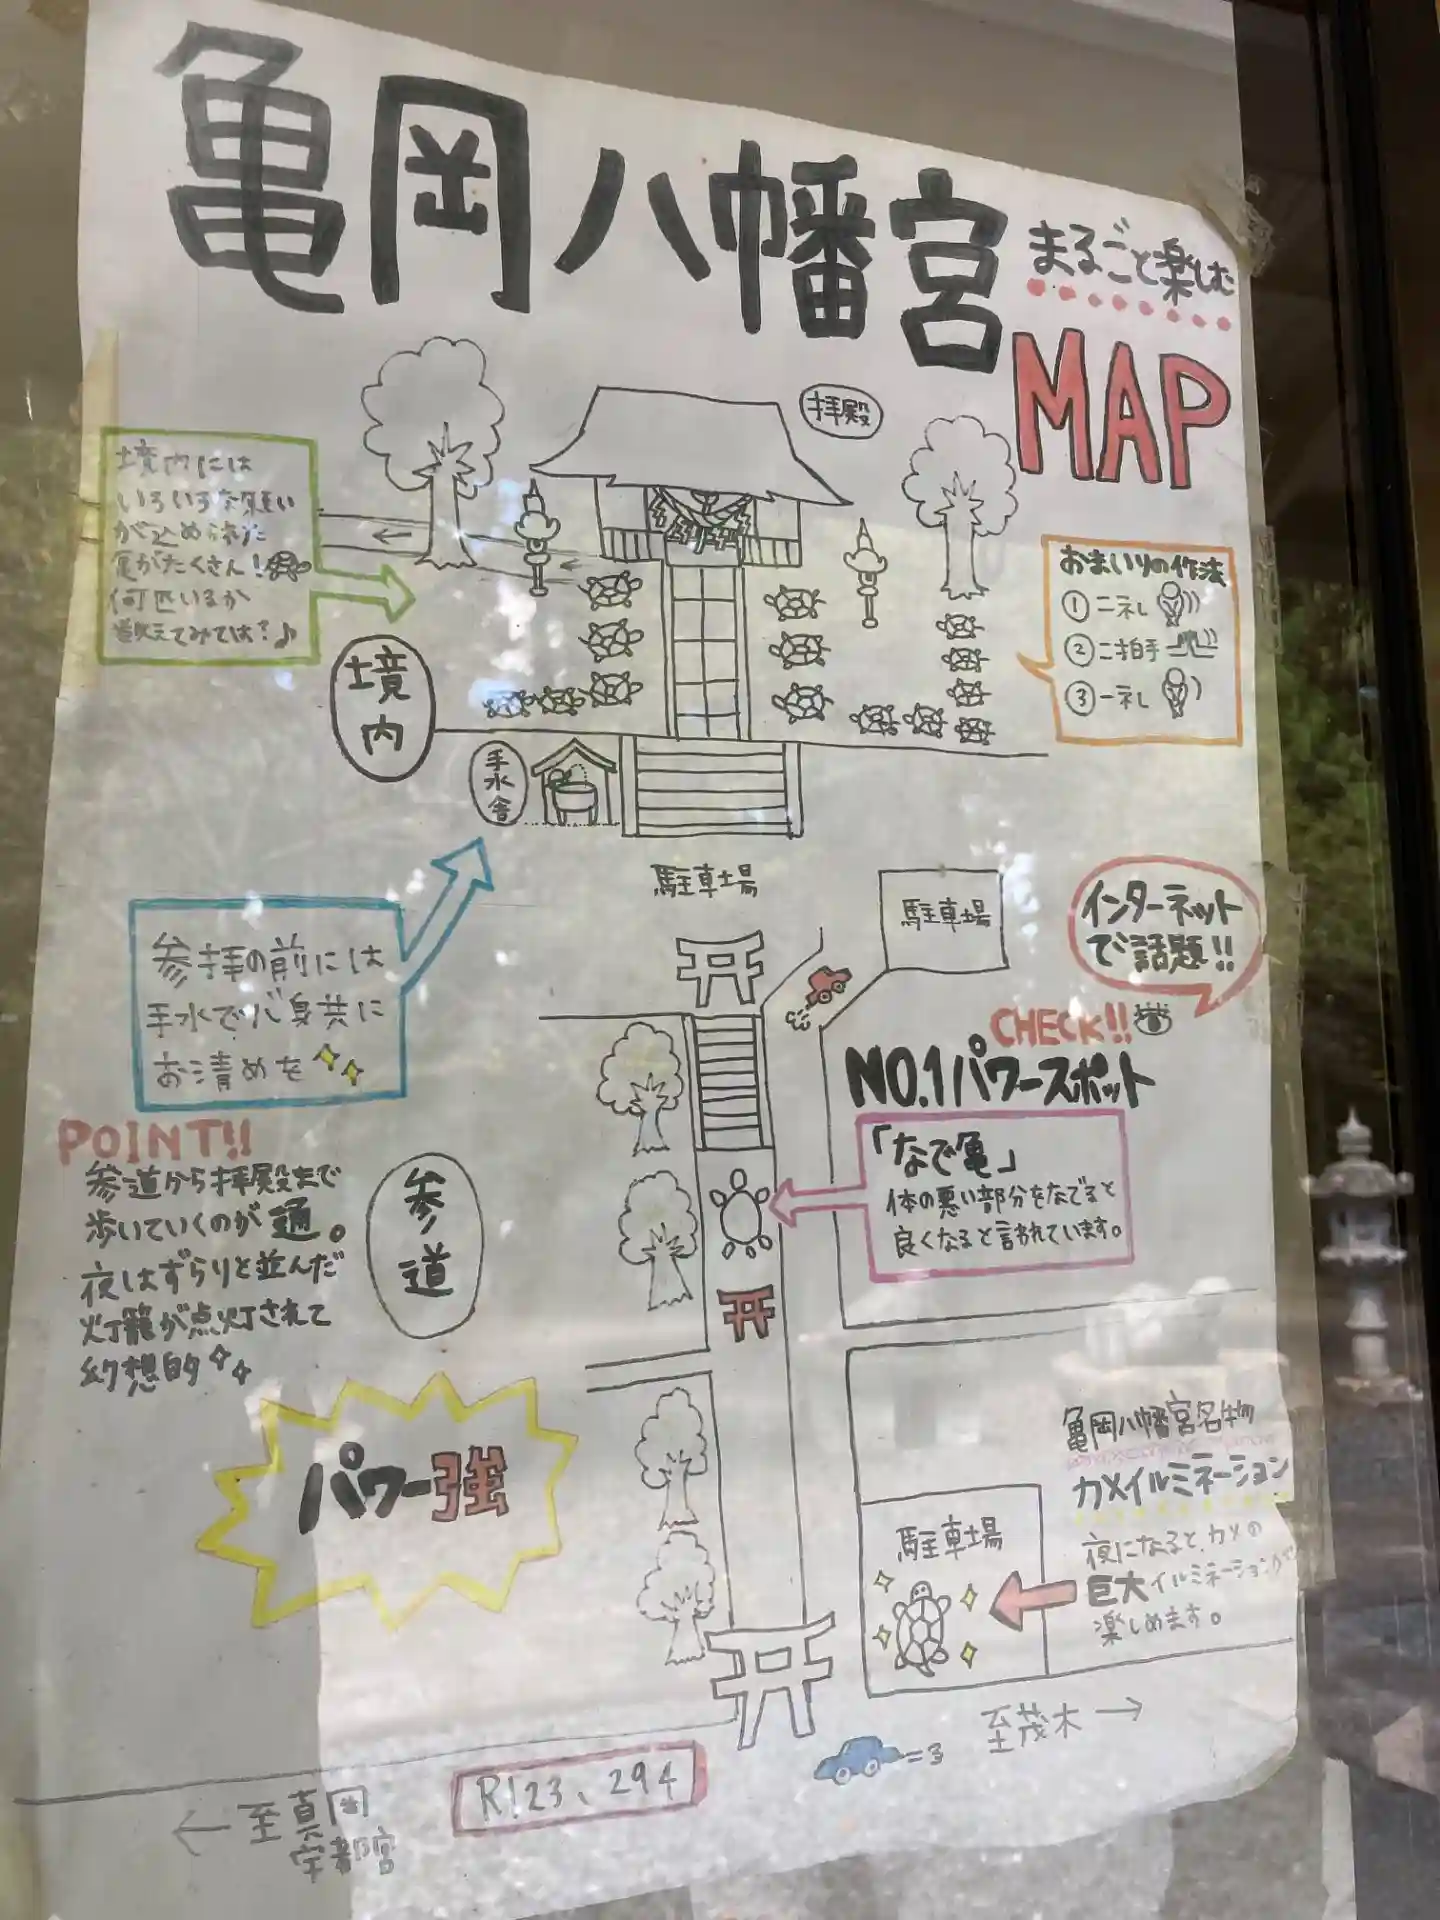 亀岡八幡宮
まるごと楽しむ
MAP
拝殿
境内には
いろいろな願い
が込められた
亀がたくさん!
何匹いるか
数えてみては?♪
おまいりの作法
①二礼
②二拍手
③一礼
境内
手水舎
駐車場
駐車場
インターネット
で話題!!
参拝の前には
手水で心身共に
お清めを
CHECK!!
NO.1パワースポット
「なで亀」
体の悪い部分をなでると
良くなると言われています。
POINT!!
参道から拝殿まで
歩いていくのが通。
夜はずらりと並んだ
灯籠が点灯されて
幻想的
参道
パワー強
亀岡八幡宮名物
カメイルミネーション
夜になると、カメの
巨大イルミネーションが
楽しめます。
駐車場
至茂木→
R123、294
←至真岡
宇都宮